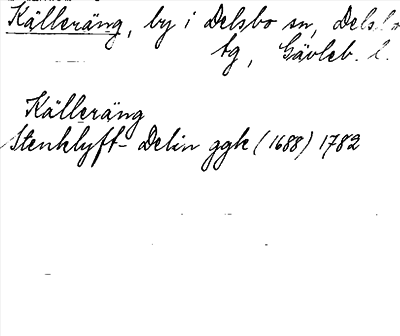 Källeräng, by i Delsbo sn, Delsbo
tg, Gävleb. l.
Källeräng
Stenklyft- Delin ggk (1688) 1782